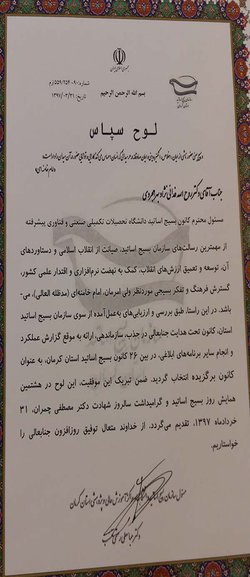 جمهوری اسلامی ایران
شماره: ۵۵۹/۶۵۴/۰۹۰/م
تاریخ: ۱۳۹۷/۰۳/۳۱
بسم الله الرحمن الرحیم
لوح سپاس
جناب آقای دکتر روح اله فدائی نژاد بهرامجردی
مسئول محترم کانون بسیج اساتید دانشگاه تحصیلات تکمیلی صنعتی و فناوری پیشرفته
از مهمترین رسالت‌های سازمان بسیج اساتید، صیانت از انقلاب اسلامی و دستاوردهای
آن، توسعه و تعمیق ارزش‌های انقلاب، کمک به نهضت نرم‌افزاری و اقتدار علمی کشور،
گسترش فرهنگ و تفکر بسیجی موردنظر ولی امرمان، امام خامنه‌ای (مدظله العالی)، می-
باشد. در این راستا، طبق بررسی و ارزیابی‌های به‌عمل‌آمده از سوی سازمان بسیج اساتید
استان، کانون تحت هدایت جنابعالی در جذب، سازماندهی، ارائه به موقع گزارش عملکرد
و انجام سایر برنامه‌های ابلاغی، در بین ۲۶ کانون بسیج اساتید استان کرمان، به‌عنوان
کانون برگزیده انتخاب گردید. ضمن تبریک این موفقیت، این لوح در هشتمین
همایش روز بسیج اساتید و گرامیداشت سالروز شهادت دکتر مصطفی چمران، ۳۱
خردادماه ۱۳۹۷، تقدیم می‌گردد. از خداوند متعال توفیق روزافزون جنابعالی را
خواستاریم.